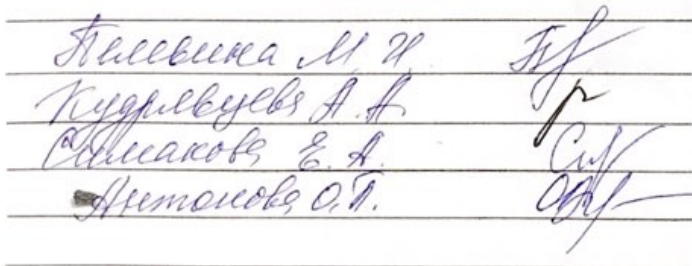 Пелевина М. И.
Кудрявцева А. А.
Симакова Е. А.
Антонова О. П.